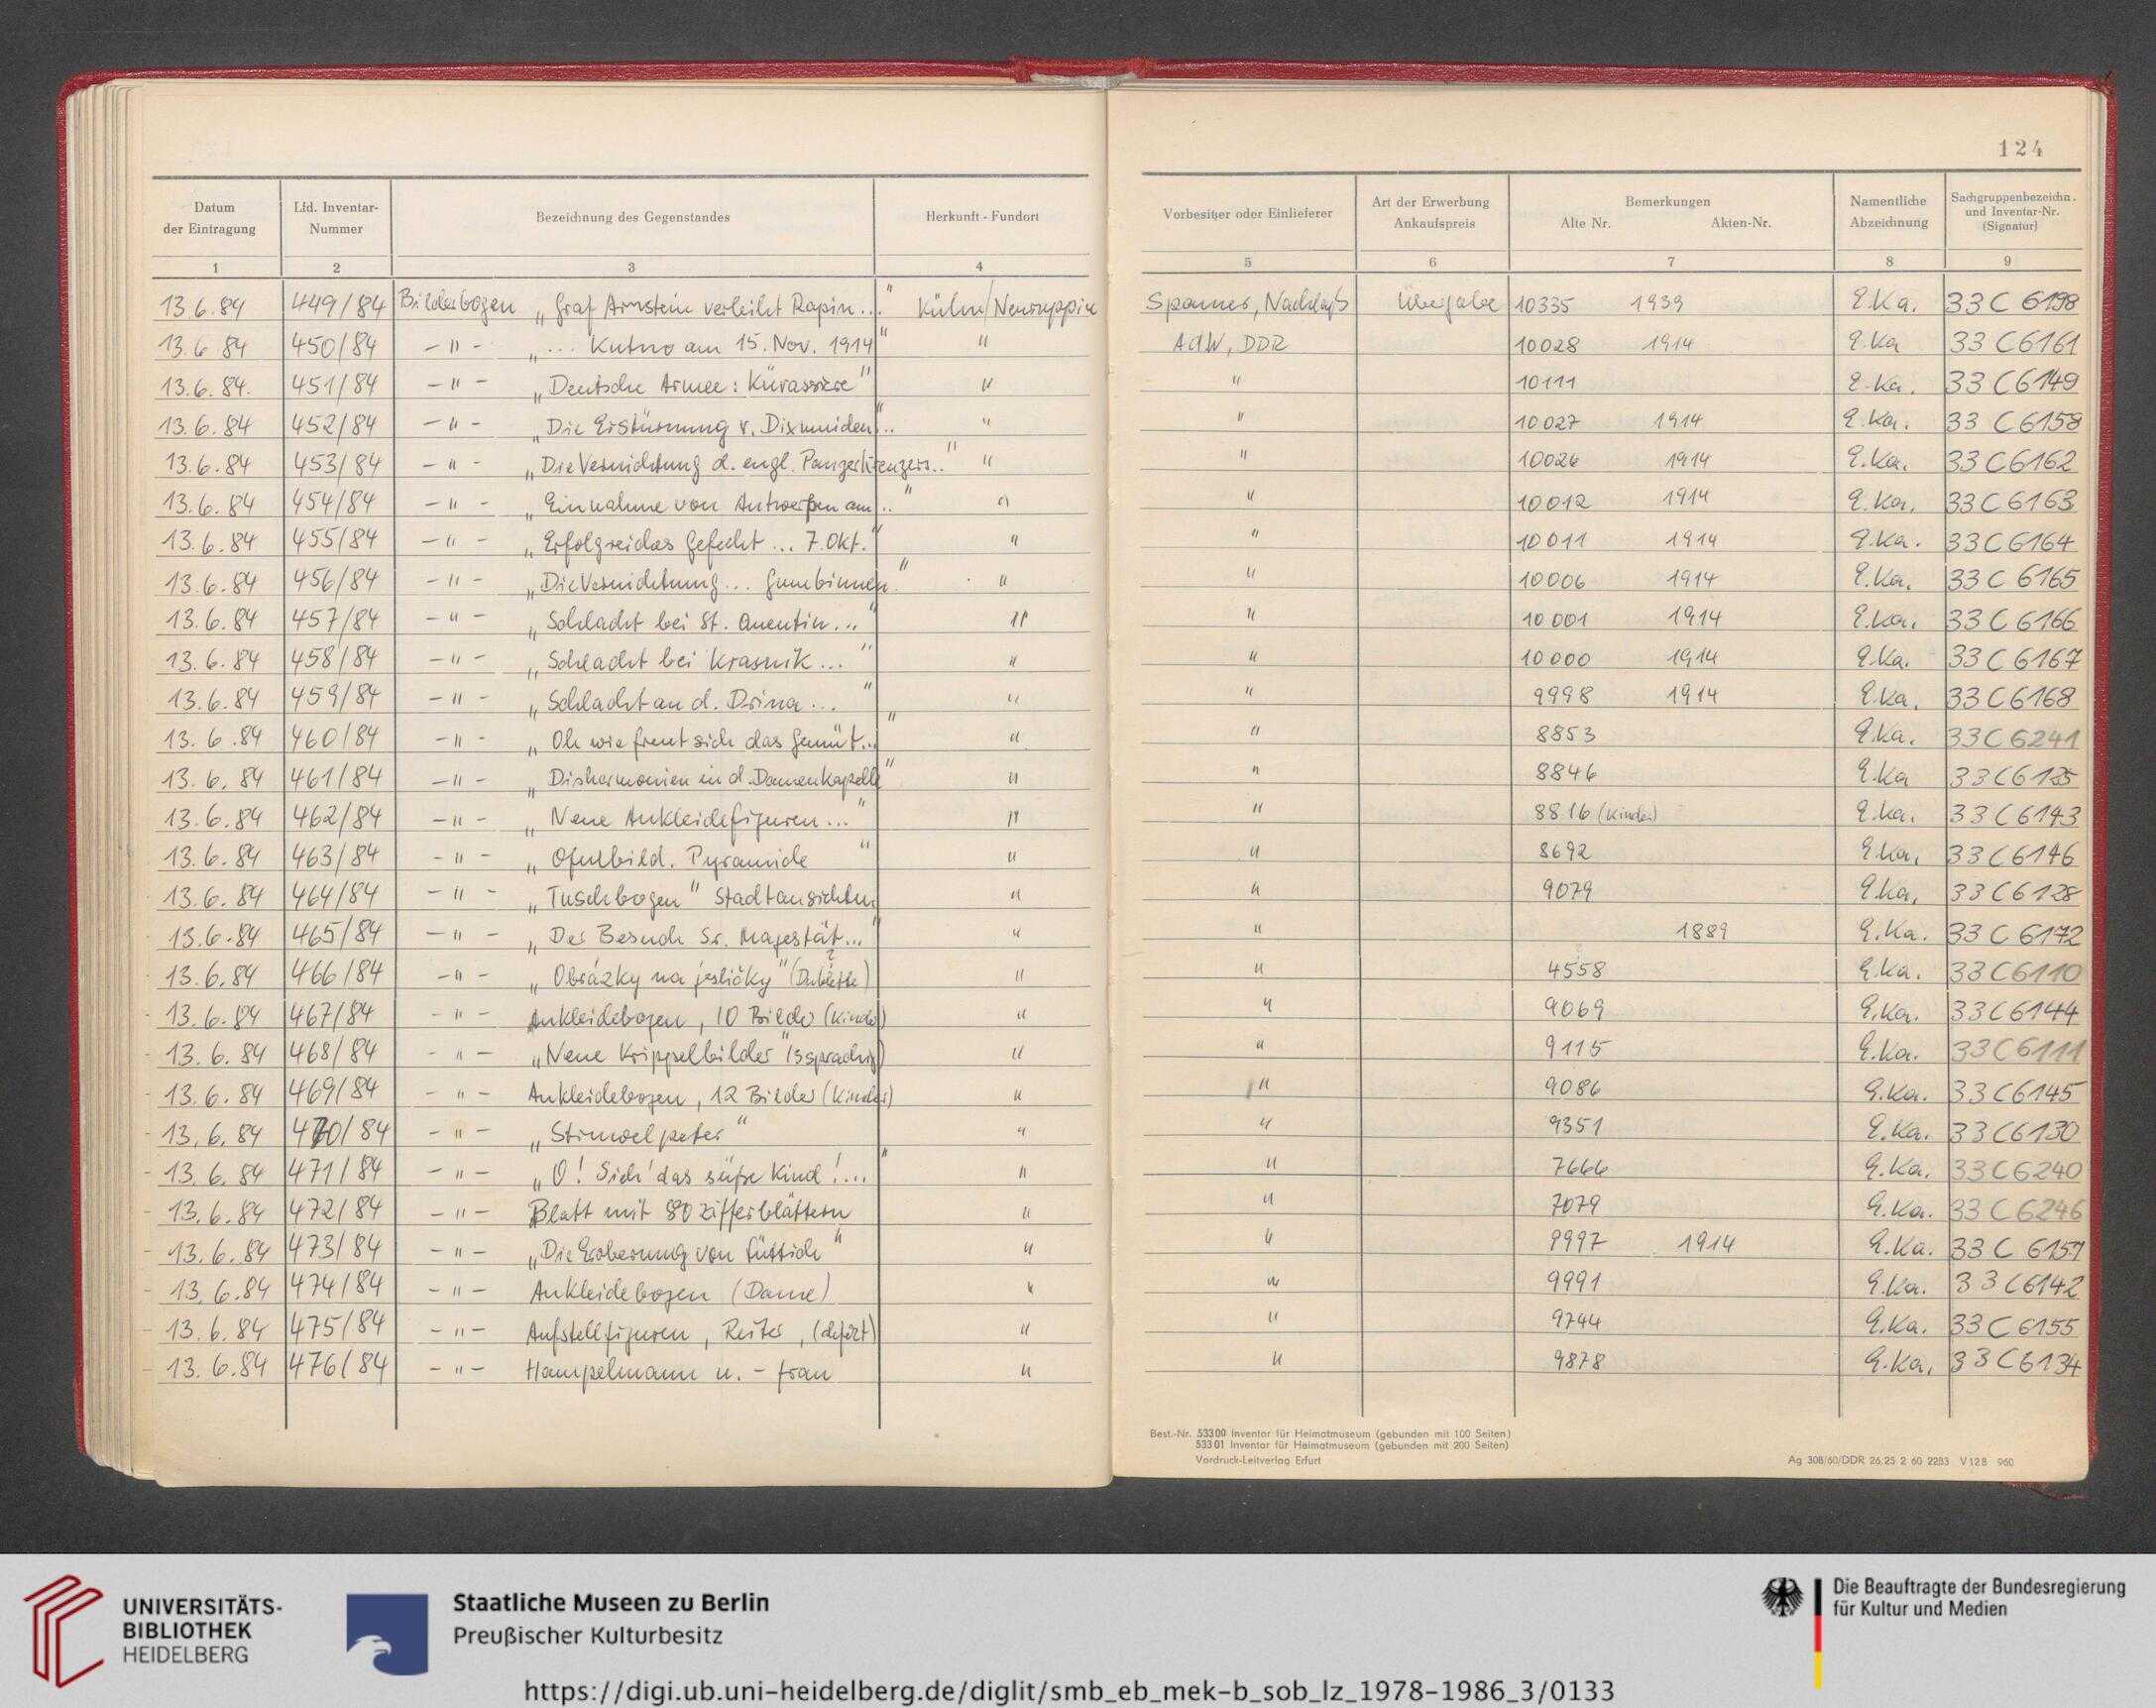 124
Datum der Eintragung | Lfd. Inventar-Nummer | Bezeichnung des Gegenstandes | Herkunft - Fundort | Vorbesitzer oder Einlieferer | Art der Erwerbung Ankaufspreis | Bemerkungen Alte Nr. Akten-Nr. | Namentliche Abzeichnung | Sachgruppenbezeichn. und Inventar-Nr. (Signatur)
1 | 2 | 3 | 4 | 5 | 6 | 7 | 8 | 9
13.6.84 | 449/84 | Bilderbogen „Graf Arnstein verleiht Rapin..." | Kühn/Neuruppin | Spamer, Nachlaß | Übergabe | 10335 1939 | E.Ka. | 33 C 6198
13.6 84 | 450/84 | -"- „... Kutno am 15. Nov. 1914" | " | AdW, DDR | 10028 1914 | E.Ka | 33 C 6161
13.6.84. | 451/84 | -"- „Deutsche Armee: Kürassiere" | " | " | 10111 | E.Ka. | 33 C 6149
13.6.84 | 452/84 | -"- „Die Erstürmung v. Dixmuiden..." | " | " | 10027 1914 | E.Ka. | 33 C 6158
13.6.84 | 453/84 | -"- „Die Vernichtung d. engl. Panzerkreuzers.." | " | " | 10026 1914 | E.Ka. | 33 C 6162
13.6.84 | 454/84 | -"- „Einnahme von Antwerpen am.." | " | " | 10012 1914 | E.Ka. | 33 C 6163
13.6.84 | 455/84 | -"- „Erfolgreiches Gefecht ... 7. Okt." | " | " | 10011 1914 | E.Ka. | 33 C 6164
13.6.84 | 456/84 | -"- „Die Vernichtung... Gumbinnen." | " | " | 10006 1914 | E.Ka. | 33 C 6165
13.6.84 | 457/84 | -"- „Schlacht bei St. Quentin..." | " | " | 10001 1914 | E.Ka. | 33 C 6166
13.6.84 | 458/84 | -"- „Schlacht bei Krasnik..." | " | " | 10000 1914 | E.Ka. | 33 C 6167
13.6.84 | 459/84 | -"- „Schlacht an d. Drina..." | " | " | 9998 1914 | E.Ka. | 33 C 6168
13.6.84 | 460/84 | -"- „Oh wie freut sich das Gemüt..." | " | " | 8853 | E.Ka. | 33 C 6241
13.6.84 | 461/84 | -"- „Disharmonien in d. Damenkapelle" | " | " | 8846 | E.Ka | 33 C 6125
13.6.84 | 462/84 | -"- „Neue Ankleidefiguren..." | " | " | 8816 (Kinder) | E.Ka. | 33 C 6143
13.6.84 | 463/84 | -"- „ Pyramide" | " | " | 8692 | E.Ka. | 33 C 6146
13.6.84 | 464/84 | -"- „Tuschbogen" Stadtansichten | " | " | 9079 | E.Ka. | 33 C 6128
13.6.84 | 465/84 | -"- „Der Besuch Sr. Majestät..." | " | " | 1889 | E.Ka. | 33 C 6172
13.6.84 | 466/84 | -"- „Obrázky na jesličky" (Dublette) | " | " | 4558 | E.Ka. | 33 C 6110
13.6.84 | 467/84 | -"- Ankleidebogen, 10 Bilder (Kinder) | " | " | 9069 | E.Ka. | 33 C 6144
13.6.84 | 468/84 | -"- „Neue Krippelbilder" (3sprachig) | " | " | 9115 | E.Ka. | 33 C 6111
13.6.84 | 469/84 | -"- Ankleidebogen, 12 Bilder (Kinder) | " | " | 9086 | E.Ka. | 33 C 6145
13.6.84 | 470/84 | -"- „Struwelpeter" | " | " | 9351 | E.Ka. | 33 C 6130
13.6.84 | 471/84 | -"- „O! Sieh' das süße Kind!..." | " | " | 7666 | E.Ka. | 33 C 6240
13.6.84 | 472/84 | -"- Blatt mit 80 Zifferblättern | " | " | 7079 | E.Ka. | 33 C 6246
13.6.84 | 473/84 | -"- „Die Eroberung von Lüttich" | " | " | 9997 1914 | E.Ka. | 33 C 6159
13.6.84 | 474/84 | -"- Ankleidebogen (Dame) | " | " | 9991 | E.Ka. | 33 C 6142
13.6.84 | 475/84 | -"- Aufstellfiguren, Reiter, (defekt) | " | " | 9744 | E.Ka. | 33 C 6155
13.6.84 | 476/84 | -"- Hampelmann u. - frau | " | " | 9878 | E.Ka. | 33 C 6134
Best.-Nr. 53300 Inventar für Heimatmuseum (gebunden mit 100 Seiten)
53301 Inventar für Heimatmuseum (gebunden mit 200 Seiten)
Vordruck-Leitverlag Erfurt
Ag 308/60/DDR 26.25 2 60 2283 V 12 8 960
UNIVERSITÄTS-
BIBLIOTHEK
HEIDELBERG
Staatliche Museen zu Berlin
Preußischer Kulturbesitz
Die Beauftragte der Bundesregierung
für Kultur und Medien
https://digi.ub.uni-heidelberg.de/diglit/smb_eb_mek-b_sob_lz_1978-1986_3/0133